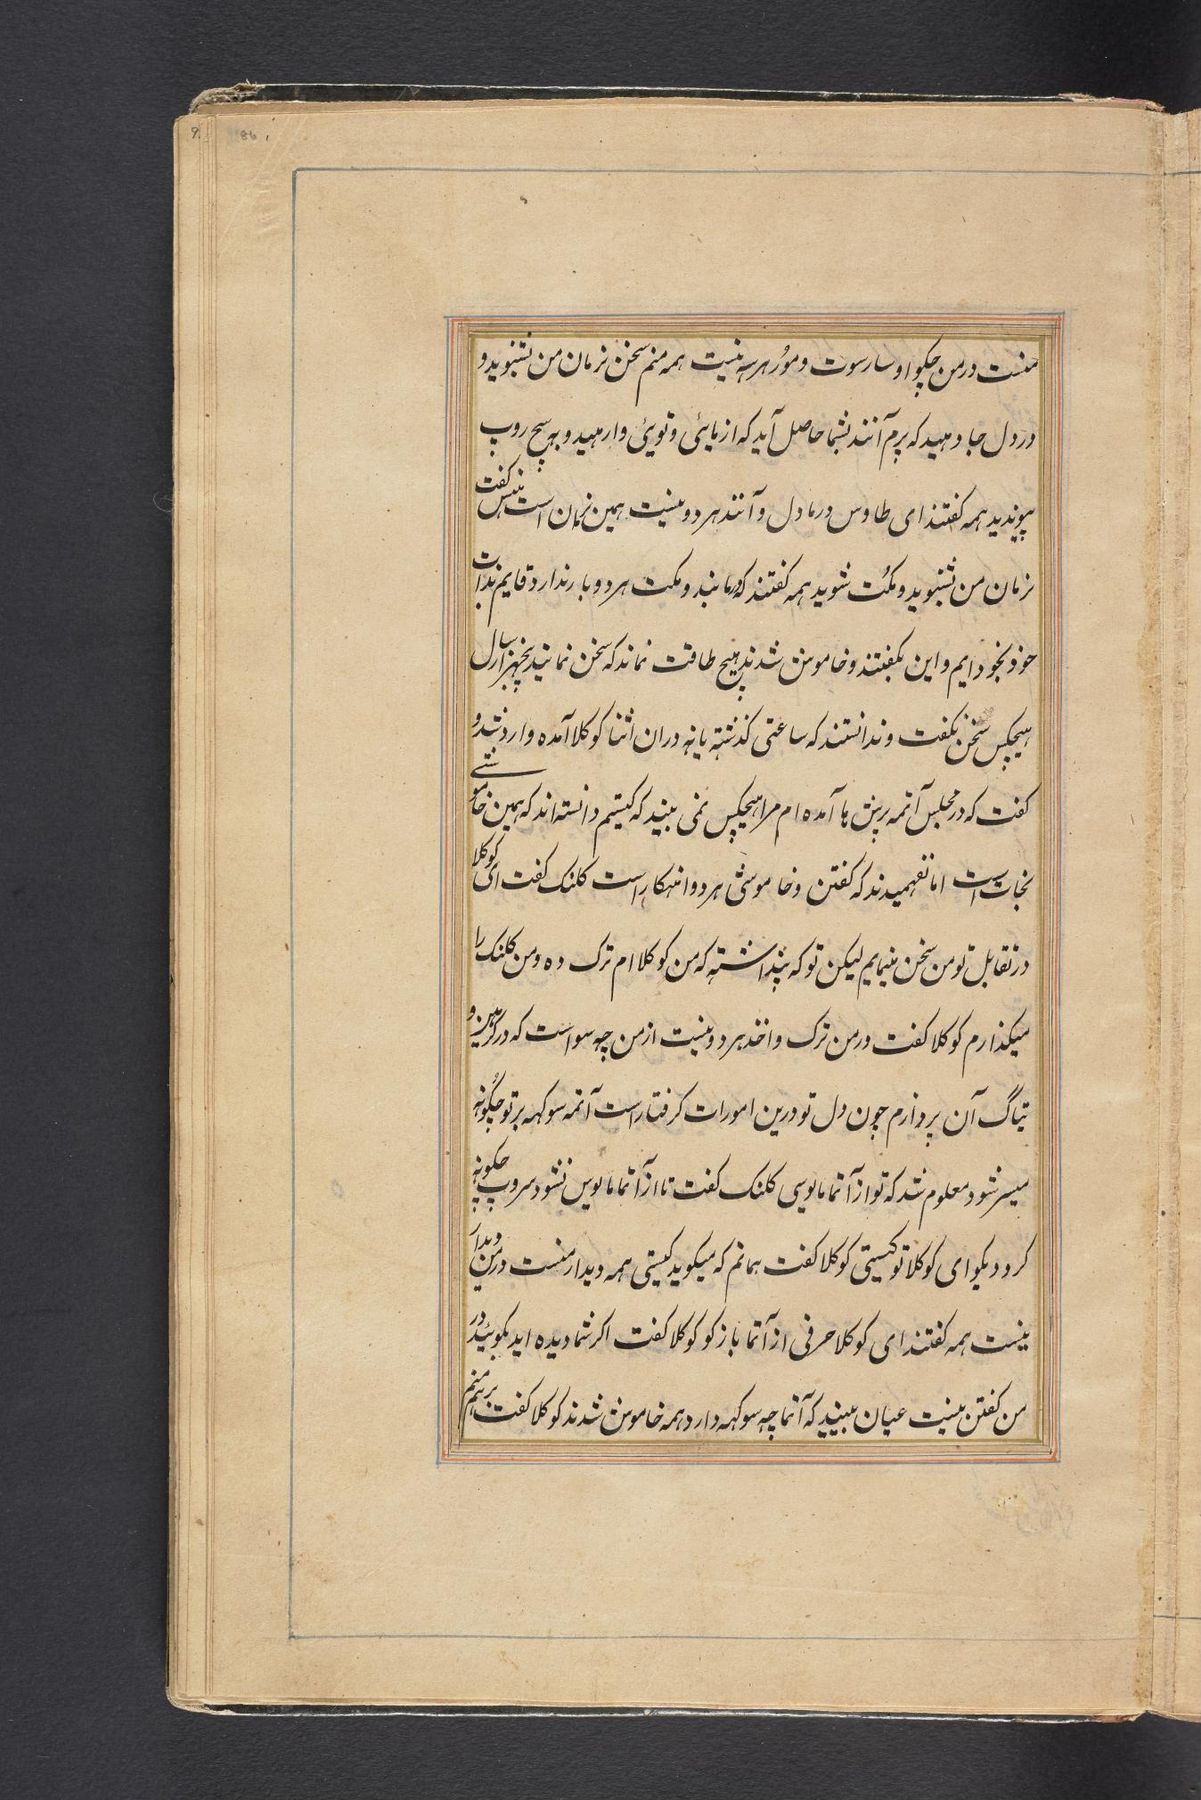 منست در من چکوا و سارسوت و مور هرسه نیست همه منم سخن نرمان من بشنوید و
در دل جا دهید که پرم آنند بشما حاصل آید که از مایئی و توئی وارهید و بہ سہج روپ
پیوندید همه گفتند ای طاوس در ما دل و آنند هر دو نیست همین نرمان است هنس گفت
نرمان من بشنوید و مکت شوید همه گفتند که در ما بند و مکت هر دو بار ندارد قایم بذات
خود بخود ایم و این بگفتند و خاموش شدند هیچ طاقت نماند که سخن نمایند پنجهزار سال
هیچکس سخن نگفت و ندانستند که ساعتی گذشته یا نه در آن اثنا کوکلا آمده وارد شد و
گفت که در مجلس آتمه پرش ها آمده ام مرا هیچکس نمی بیند که کیستم دانسته اند که همین خاموشی
نجات است اما نفهمیدند که گفتن و خاموشی هر دو انهکار است کلنک گفت ای کوکلا
در تقابل تو من سخن مینمایم لیکن تو که پنداشته که من کوکلا ام ترک ده و من کلنک را
میگذارم کوکلا گفت در من ترک و اخذ هر دو نیست از من چه سوا است که در گرهن و
تیاگ آن پردازم چون دل تو درین امورات گرفتار است آتمه سوکهه بر تو چگونه
میسر شود معلوم شد که تو از آتما مایوسی کلنک گفت تا از آتما مایوس نشود سروپ چگونه
گردد بگو ای کوکلا تو کیستی کوکلا گفت همانم که میگوید کیستی همه دیدار منست در من دیدار
نیست همه گفتند ای کوکلا حرفی از آتما باز گو کوکلا گفت اگر شما دیده اید بگوئید در
من گفتن نیست عیان ببینید که آتما چه سوکهه دارد همه خاموش شدند کوکلا گفت برهم منم